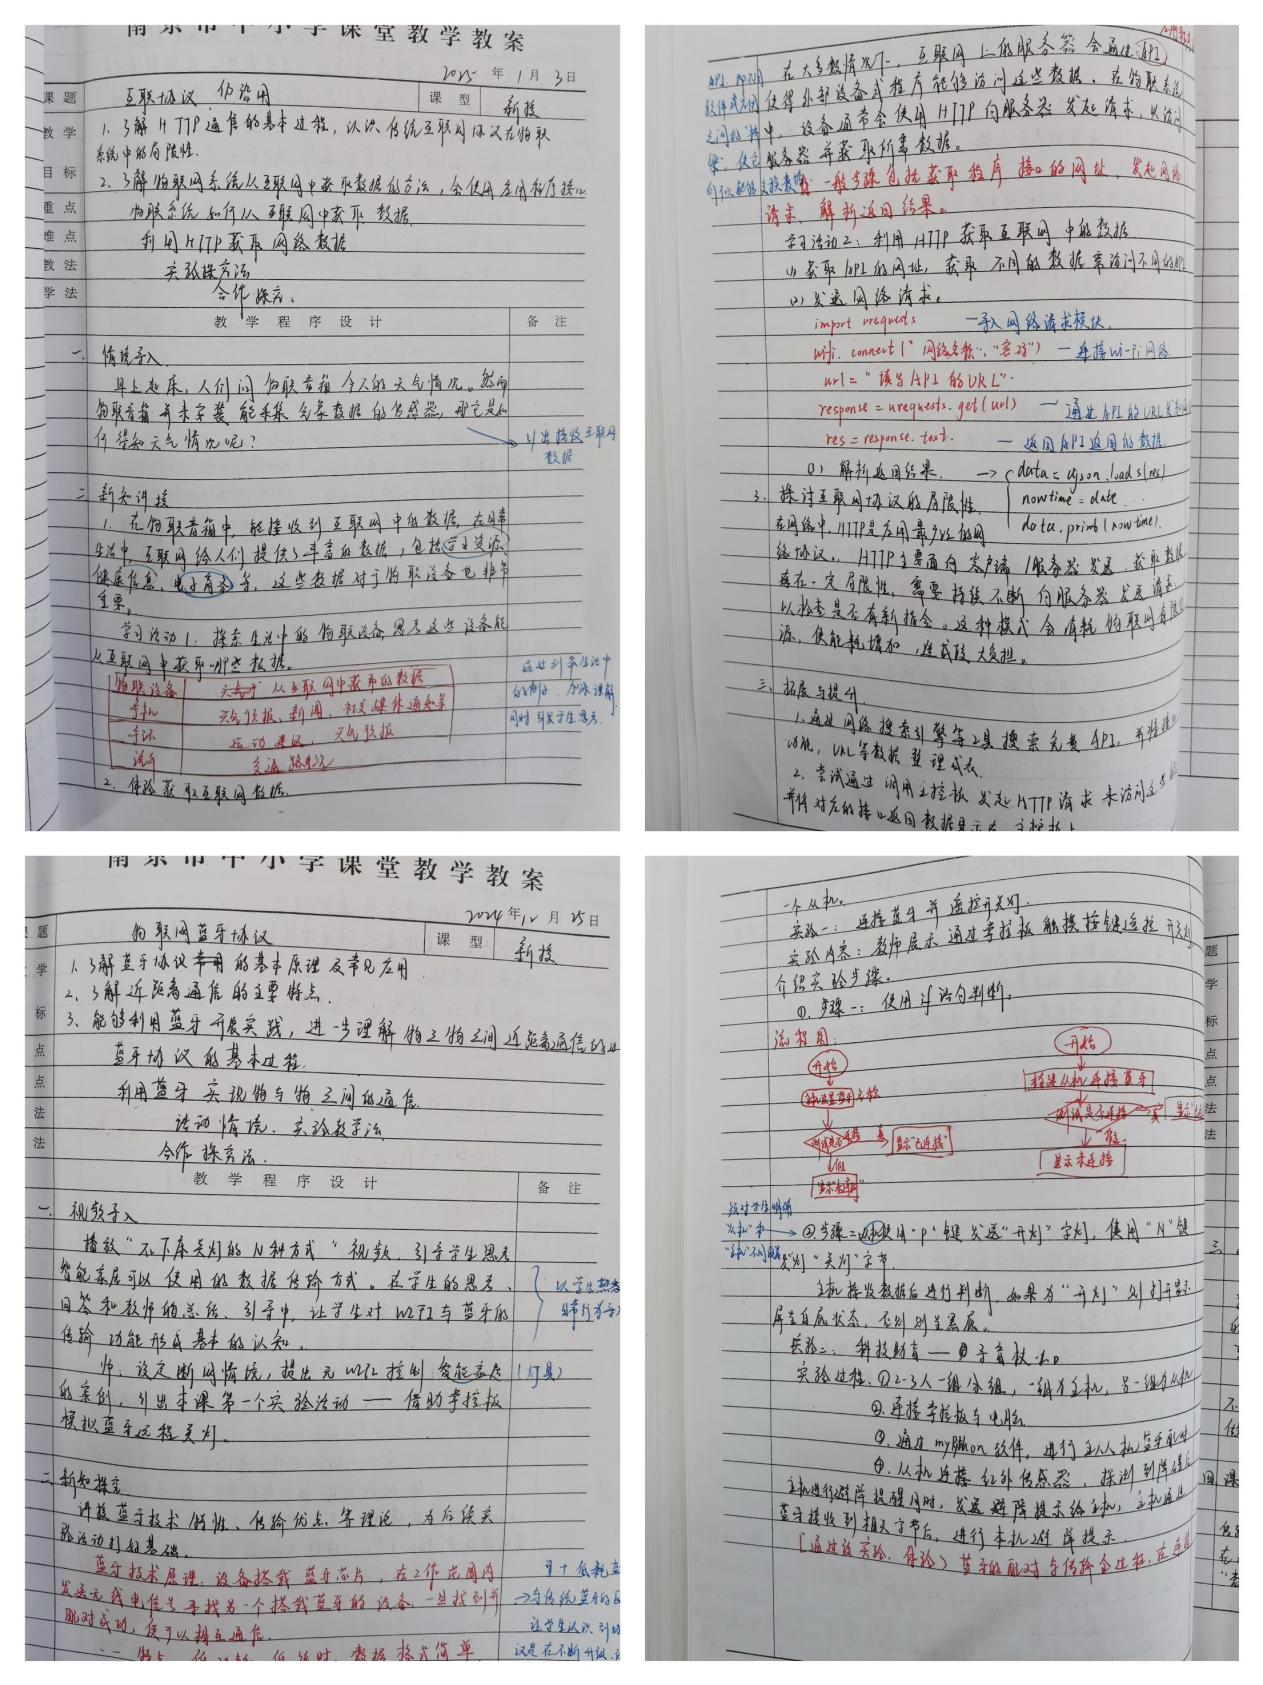 南京市中小学课堂教学教案
2025 年 1 月 3 日
课题 互联协议 课型 新授
教学 1. 了解 HTTP 通信的基本过程, 认识传统互联网协议在物联
系统中的局限性.
目标 2. 了解物联网系统从互联网中获取数据的方法, 会使用应用程序接口
重点 物联系统如何从互联网中获取数据
难点 利用 HTTP 获取网络数据
教法 实验探究法
学法 合作探究.
教学程序设计 备注
一. 情境导入
早上起床, 人们问物联音箱今天的天气情况。然而
物联音箱并未安装能采集气象数据的传感器, 那它是如
何得知天气情况呢?
引出接收互联网
数据
二. 新知讲授
1. 在物联音箱中, 能接收到互联网中的数据, 在日常
生活中, 互联网给人们提供了丰富的数据, 包括
健康信息、电子商务等, 这些数据对于物联设备也非常
重要。
学习活动1. 探索生活中的物联设备, 思考这些设备能
从互联网中获取哪些数据。
物联设备 从互联网中获取的数据
手机 天气预报、新闻、社交媒体通知等
手环 运动建议, 天气预报
汽车 交通路况
通过列举生活中
的例子, 加深理解,
同时引发学生思考.
2. 体验获取互联网数据.
在大多数情况下, 互联网上的服务器会通过 API
使得外部设备或程序能够访问这些数据。在物联系统
中, 设备通常会使用 HTTP 向服务器发起请求, 以访问
服务器并获取所需数据。
一般步骤包括获取程序接口的网址、发起网络
请求、解析返回结果。
学习活动2: 利用 HTTP 获取互联网中的数据
(1) 获取 API 的网址, 获取不同的数据需访问不同的API
(2) 发送网络请求。
import urequests —导入网络请求模块.
wifi.connect("网络名称", "密码") —连接Wi-Fi网络
url = "填写API的URL".
response = urequests.get(url) —通过API的URL
res = response.text. —返回API返回的数据
(3) 解析返回结果. → data = ujson.loads(res)
nowtime = date...
data.print(nowtime)
3. 探讨互联网协议的局限性.
在网络中, HTTP是应用最广泛的网
络协议。HTTP主要面向客户端/服务器发送、获取数据
存在一定局限性, 需要持续不断向服务器发送请求
以检查是否有新指令。这种模式会消耗物联网有限资
源, 使能耗增加, 造成较大负担。
三. 拓展与提升
1. 通过网络搜索引擎等工具搜索免费API, 并将接口
功能, URL等数据整理成表.
2. 尝试通过调用主控板发起HTTP请求来访问这些
并将对应的接口返回数据显示在主控板上
南京市中小学课堂教学教案
2024 年 12 月 25 日
题 物联网蓝牙协议 课型 新授
学 1. 了解蓝牙协议的基本原理及常见应用
2. 了解近距离通信的主要特点.
标 3. 能够利用蓝牙开展实践, 进一步理解物与物之间近距离通信的
点 蓝牙协议的基本过程.
点 利用蓝牙实现物与物之间的通信.
法 活动情境. 实验教学法
法 合作探究法.
教学程序设计 备注
一. 视频导入
播放“不下床关灯的N种方式”视频, 引导学生思考
智能家居可以使用的数据传输方式。在学生的思考、
回答和教师的总结、引导中, 让学生对WIFI与蓝牙的
传输功能形成基本的认知。
师: 设定断网情境, 提出无WIFI控制智能家居 (灯具)
的案例, 引出本课第一个实验活动——借助掌控板
模拟蓝牙远程关灯。
二. 新知探究
讲授蓝牙技术特性、传输优点等理论, 为后续实
验活动打好基础。
蓝牙技术原理: 设备搭载蓝牙芯片, 在工作范围内
发送无线电信号寻找另一个搭载蓝牙的设备, 一旦找到并
配对成功, 便可以相互通信.
让学生认识到
议是在不断升级.
特点: 低功耗、低延时、数据格式简单
一个从机.
实验一: 连接蓝牙并遥控开关灯.
实验内容: 教师展示通过掌控板触摸按键遥控开关灯
介绍实验步骤。
①. 步骤一: 使用if语句判断。
流程图:
开始
设置蓝牙名称
测试是否连接 真 显示“已连接”
假
显示“未连接”
开始
搭建从机连接蓝牙
测试是否连接 真 显示“已
假
显示未连接
②. 步骤二: 从机使用“P”键发送“开灯”字节, 使用“N”键
发送“关灯”字节.
主机接收数据后进行判断, 如果为“开灯”则打开显示
屏呈白底状态, 否则则呈黑底。
实验二: 科技助盲——电子盲杖
实验过程: ①2-3人一组分组, 一组为主机, 另一组为从机
②. 连接掌控板与电脑.
③. 通过mpython软件, 进行主从机蓝牙配对
④. 从机连接红外传感器, 探测到障碍
主机进行避障提醒同时, 发送避障提示给主机, 主机通过
蓝牙接收到相关字节后, 进行本机避障提示.
[通过该实验, 体验蓝牙的配对与传输全过程, 在